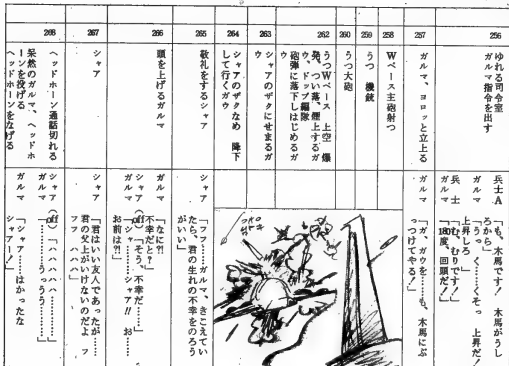 256
ゆれる司令室
ガルマ指令を出す
兵士A「も、木馬です!　木馬がうし
ろから」
ガルマ「うっ……くっ……くそっ　上昇だ!
上昇しろ」
兵士「む、むりです!」
ガルマ「180度、回頭だ!」
257
ガルマ、ヨロッと立上る
ガルマ「ガ、ガウを……も、木馬にぶ
っつけてやる!」
258
Wベース主砲射つ
259
うつ　機銃
260
うつ大砲
262
うつWベース　上空　爆
発、つい落、煙上するガ
ウ、ドップ編隊
砲弾に落下しはじめるガ
ウ
263
シャアのザクにせまるガ
ウ
264
シャアのザクなめ　降下
して行くガウ
265
敬礼をするシャア
シャア「フフ……ガルマ、きこえてい
たら、君の生れの不幸をのろう
がいい」
266
頭を上げるガルマ
ガルマ「なに?!
不幸だと?」
シャア(off)「そう、不幸だ……」
ガルマ「シャ……シャア!!　お……
お前は?!」
267
シャア
シャア「君はいい友人であったが……
君の父上がいけないのだよ　フ
フフ　ハハハ」
268
ヘッドホーン通話切れる
呆然のガルマ、ヘッドホ
ーンを投げる
ヘッドホーンをなげる
シャア(off)「ハハハハハ……」
ガルマ「……うううう………」
ガルマ「シャア……はかったな
シャアー!」